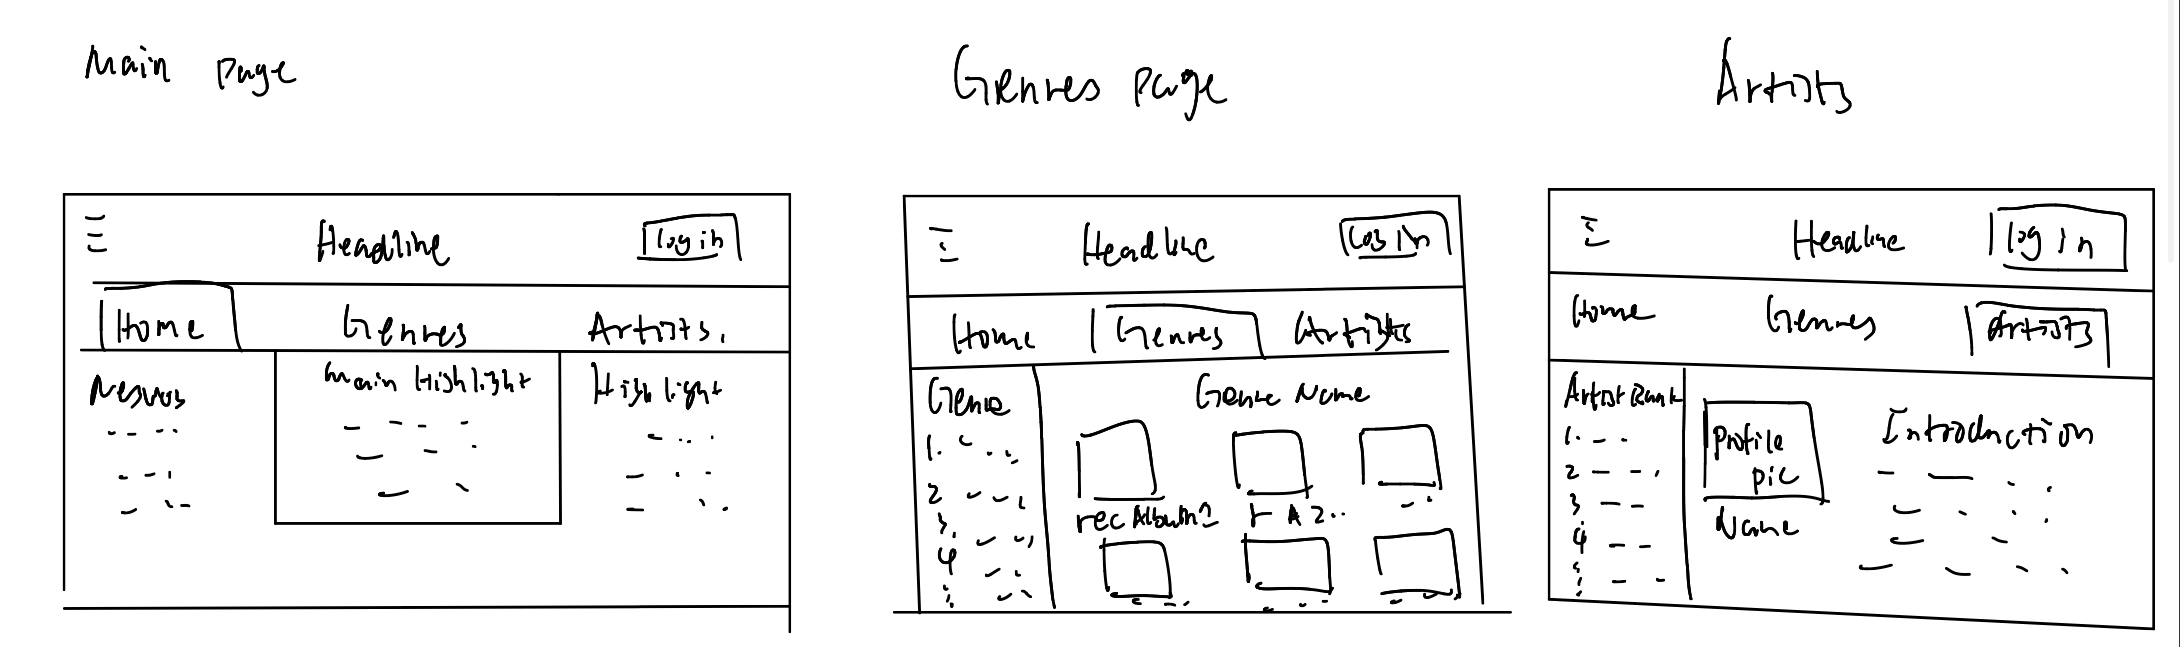 Main page
Genres page
Artists
Headline
log in
Home
Genres
Artists.
Main Highlight
Highlight
Headline
Log In
Home
Genres
Artists
Genre
1.
2
3.
4
Genre Name
rec Album1
r A 2..
Headline
log in
Home
Genres
Artists
Artist Rank
1.
2
3
4
profile
pic
Name
Introduction